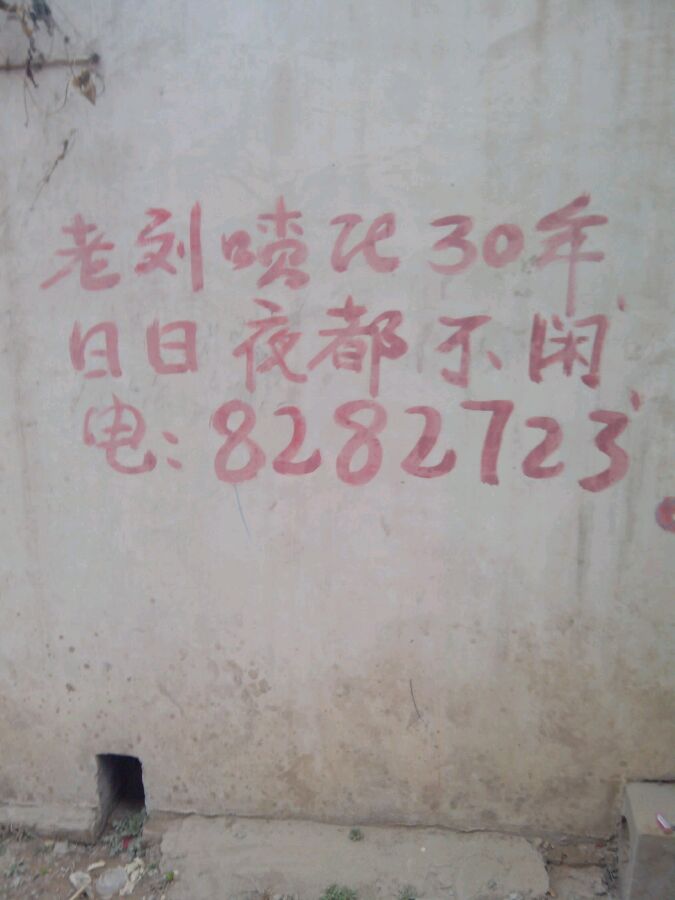 老刘喷花30年
日日夜都不闲
电:8282723